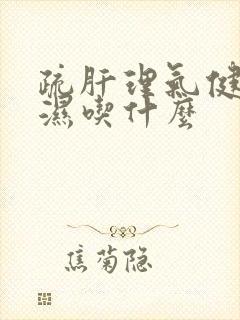 疏肝理氣健
濕喫什麼
焦菊隐